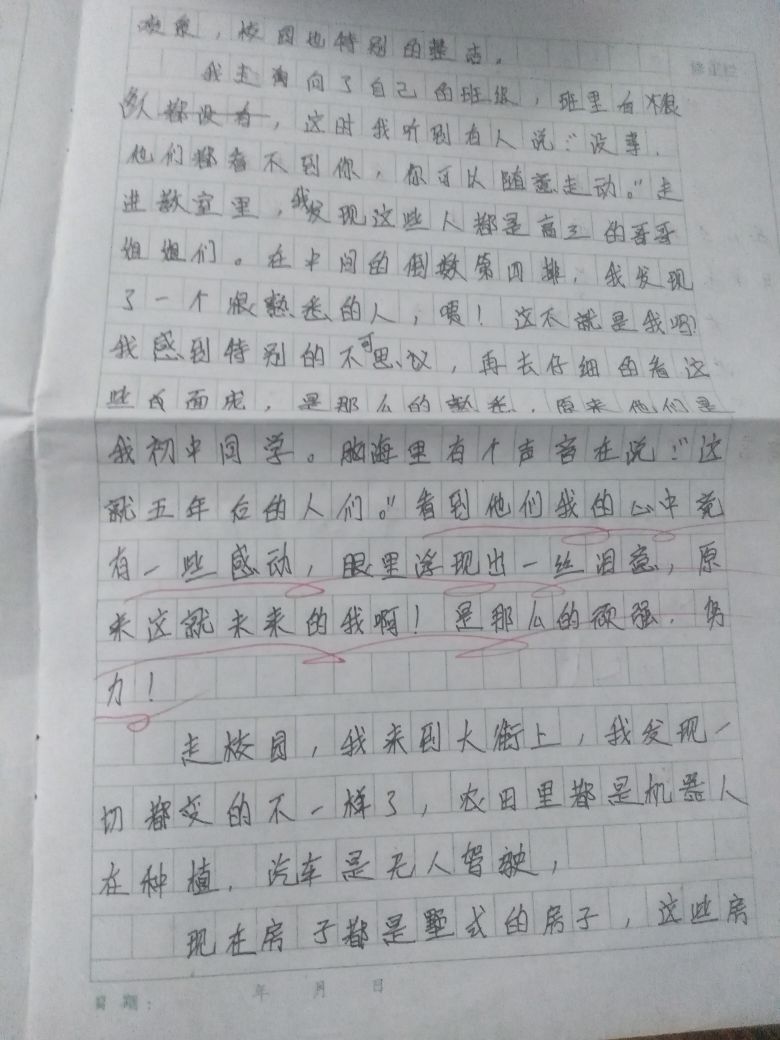 ，校园也特别的整洁。
我走向了自己的班级，班里有很
多人都没有，这时我听到有人说："没事，
他们都看不到你，你可以随意走动。"走
进教室里，我发现这些人都是高三的哥哥
姐姐们。在中间的倒数第四排，我发现
了一个很熟悉的人，咦！这不就是我吗?
我感到特别的不可思议，再去仔细的看这
些，是那么的熟悉，原来他们是
我初中同学。脑海里有个声音在说："这
就五年后的人们。"看到他们我的心中竟
有一些感动，眼里浮现出一丝泪意，原
来这就未来的我啊！是那么的顽强，努
力！
走校园，我来到大街上，我发现一
切都变的不一样了，农田里都是机器人
在种植，汽车是无人驾驶，
现在房子都是墅式的房子，这些房
年 月 日